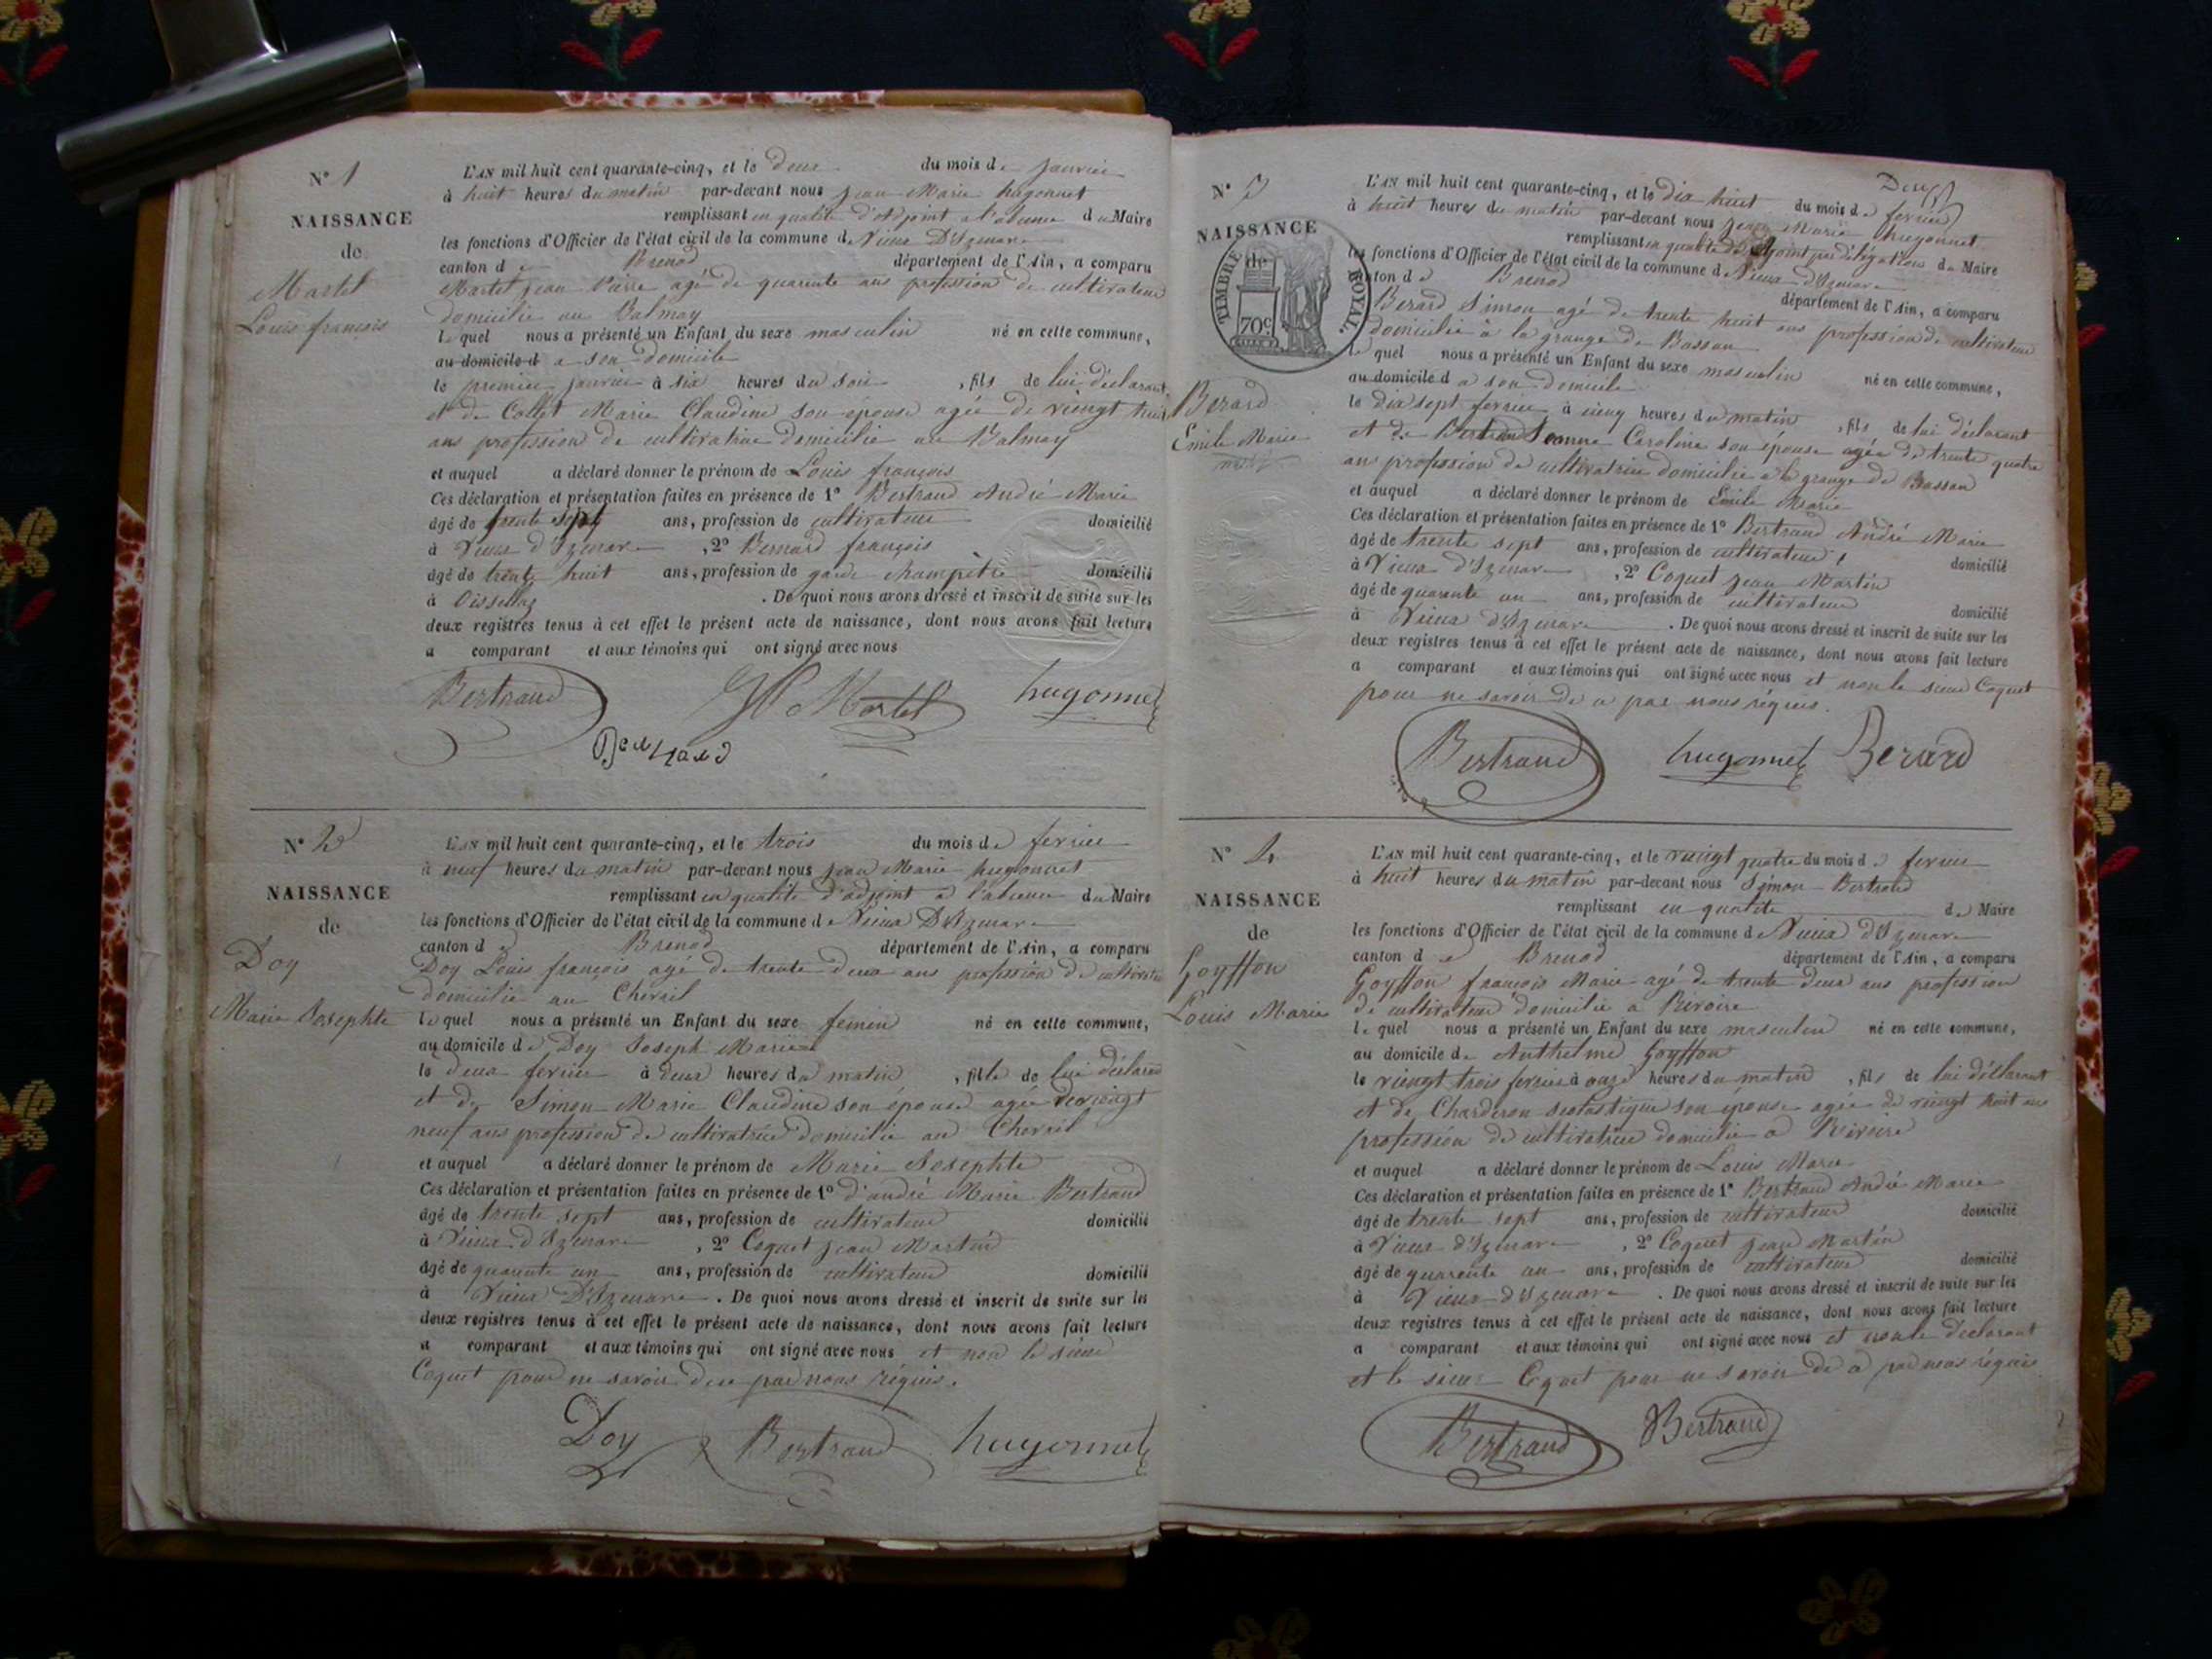 N° 1
NAISSANCE
de
Martel
Louis françois
L'AN mil huit cent quarante-cinq, et le deux du mois de janvier
à huit heures du matin par-devant nous jean Marie hugonnet
remplissant en qualité d'Adjoint a l'absence du Maire
les fonctions d'Officier de l'état civil de la commune de Vieux D'Izenave
canton de Brenod département de l'Ain, a comparu
Martel jean Pierre agé de quarante ans profession de cultivateur
domicilié au Balmay
lequel nous a présenté un Enfant du sexe masculin né en cette commune,
au domicile d a son domicile
le premier janvier à six heures du soir, fils de lui déclarant
et de Collet Marie Claudine son épouse agée de viengt huit
ans profession de cultivatrice domicilié au Balmay
et auquel a déclaré donner le prénom de Louis françois
Ces déclaration et présentation faites en présence de 1° Bertrand André Marie
âgé de trente sept ans, profession de cultivateur domicilié
à Vieux d'Izenave, 2° Bernard françois
âgé de trente huit ans, profession de garde champètre domicilié
à Oissellaz. De quoi nous avons dressé et inscrit de suite sur les
deux registres tenus à cet effet le présent acte de naissance, dont nous avons fait lecture
a comparant et aux témoins qui ont signé avec nous
Bertrand JP Martel hugonnet
Bernard
N° 2
NAISSANCE
de
Doy
Marie Josephte
L'AN mil huit cent quarante-cinq, et le trois du mois de fevrier
à neuf heures du matin par-devant nous jean Marie hugonnet
remplissant en qualité d'adjoint a l'absence du Maire
les fonctions d'Officier de l'état civil de la commune de Vieux D'Izenave
canton de Brenod département de l'Ain, a comparu
Doy Louis françois agé de trente deux ans profession de cultivateur
domicilié au Chevril
lequel nous a présenté un Enfant du sexe feminin né en cette commune,
au domicile de Doy Joseph Marie
le deux fevrier à deux heures du matin, fille de lui déclarant
et de Simon Marie Claudine son épouse agée de viengt
neuf ans profession de cultivatrice domicilié au Chevril
et auquel a déclaré donner le prénom de Marie Josephte
Ces déclaration et présentation faites en présence de 1° d'andré Marie Bertrand
âgé de trente sept ans, profession de cultivateur domicilié
à Vieux d'Izenave, 2° Coquet jean Martin
âgé de quarente un ans, profession de cultivateur domicilié
à Vieux D'Izenave. De quoi nous avons dressé et inscrit de suite sur les
deux registres tenus à cet effet le présent acte de naissance, dont nous avons fait lecture
a comparant et aux témoins qui ont signé avec nous et non le sieur
Coquet pour ne savoir de ce par nous réquis.
Doy Bertrand hugonnet
Deux
N° 3
NAISSANCE
de
TIMBRE ROYAL.
70c
Berard
Emile Marie
L'AN mil huit cent quarante-cinq, et le dix huit du mois de fevrier
à huit heures du matin par-devant nous jean Marie hugonnet
remplissant en qualité d'adjoint par délégation du Maire
les fonctions d'Officier de l'état civil de la commune de Vieux d'Izenave
canton de Brenod département de l'Ain, a comparu
Berard Simon agé de trente huit ans profession de cultivateur
domicilié à la grange de Bassan
lequel nous a présenté un Enfant du sexe masculin né en cette commune,
au domicile d a son domicile
le dix sept fevrier à cinq heures du matin, fils de lui déclarant
et de Bertrand Jeanne Caroline son épouse agée de trente quatre
ans profession de cultivatrice domicilié a la grange de Bassan
et auquel a déclaré donner le prénom de Emile Marie
Ces déclaration et présentation faites en présence de 1° Bertrand André Marie
âgé de trente sept ans, profession de cultivateur domicilié
à Vieux d'Izenave, 2° Coquet jean Martin
âgé de quarante un ans, profession de cultivateur domicilié
à Vieux d'Izenave. De quoi nous avons dressé et inscrit de suite sur les
deux registres tenus à cet effet le présent acte de naissance, dont nous avons fait lecture
a comparant et aux témoins qui ont signé avec nous et non le sieur Coquet
pour ne savoir de ce par nous réquis.
Bertrand hugonnet Berard
N° 4
NAISSANCE
de
Goyffon
Louis Marie
L'AN mil huit cent quarante-cinq, et le viengt quatre du mois de fevrier
à huit heures du matin par-devant nous Simon Bertrand
remplissant en qualité de Maire
les fonctions d'Officier de l'état civil de la commune de Vieux d'Izenave
canton de Brenod département de l'Ain, a comparu
Goyffon françois Marie agé de trente deux ans profession
de cultivateur domicilié a Rivoire
lequel nous a présenté un Enfant du sexe masculin né en cette commune,
au domicile de Anthelme Goyffon
le viengt trois fevrier à onze heures du matin, fils de lui déclarant
et de Charderon scolastique son épouse agée de viengt huit ans
profession de cultivatrice domicilié a Rivoire
et auquel a déclaré donner le prénom de Louis Marie
Ces déclaration et présentation faites en présence de 1° Bertrand André Marie
âgé de trente sept ans, profession de cultivateur domicilié
à Vieux d'Izenave, 2° Coquet jean Martin
âgé de quarente un ans, profession de cultivateur domicilié
à Vieux d'Izenave. De quoi nous avons dressé et inscrit de suite sur les
deux registres tenus à cet effet le présent acte de naissance, dont nous avons fait lecture
a comparant et aux témoins qui ont signé avec nous et non le declarant
et le sieur Coquet pour ne savoir de ce par nous réquis
Bertrand Bertrand